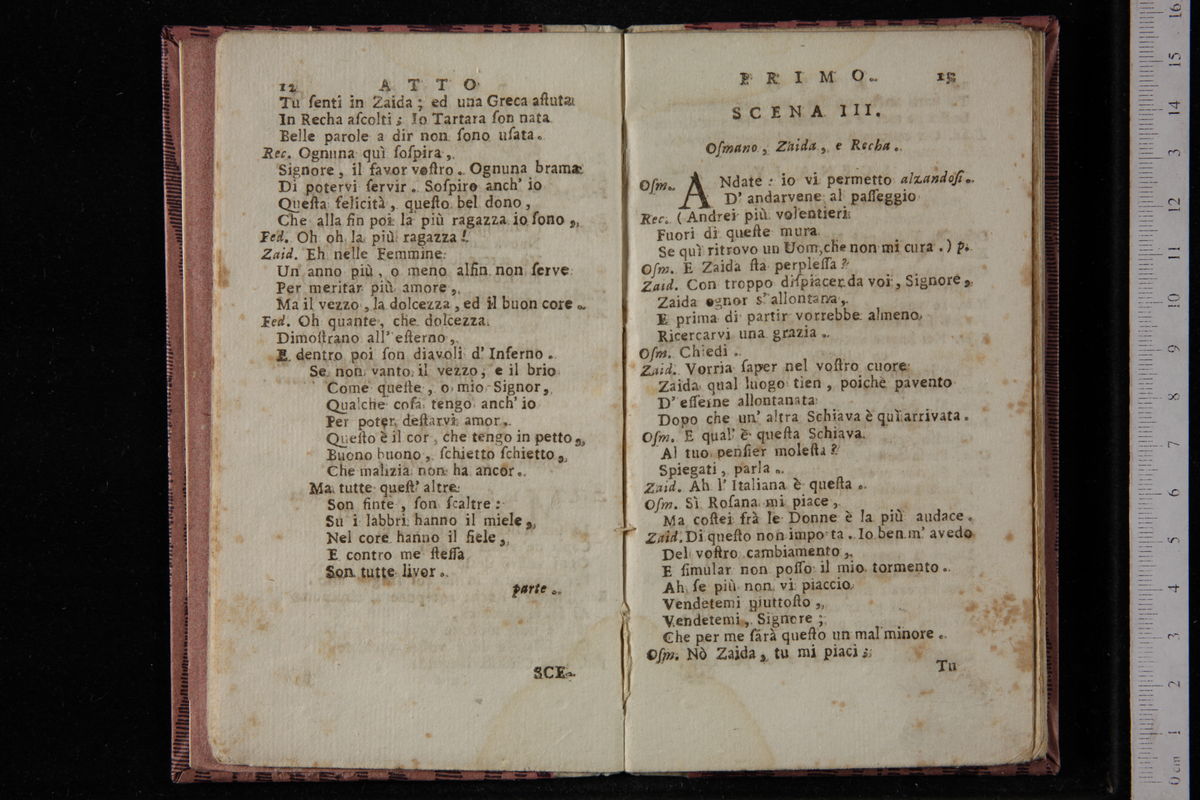 12 ATTO
Tu ſenti in Zaida ; ed una Greca aſtuta
In Recha aſcolti ; Io Tartara ſon nata
Belle parole a dir non ſono uſata.
Rec. Ognuna quì ſoſpira ,
Signore , il favor voſtro . Ognuna brama
Di potervi ſervir . Soſpiro anch' io
Queſta felicità , queſto bel dono ,
Che alla fin poi la più ragazza io ſono ,
Fed. Oh oh la più ragazza !
Zaid. Eh nelle Femmine
Un anno più , o meno alfin non ſerve
Per meritar più amore ,
Ma il vezzo , la dolcezza , ed il buon core .
Fed. Oh quante , che dolcezza
Dimoſtrano all' eſterno ,
E dentro poi ſon diavoli d' Inferno .
Se non vanto il vezzo , e il brio
Come queſte , o mio Signor ,
Qualche coſa tengo anch' io
Per poter deſtarvi amor .
Queſto è il cor , che tengo in petto ,
Buono buono , ſchietto ſchietto ,
Che malizia non ha ancor .
Ma tutte queſt' altre
Son finte , ſon ſcaltre :
Su i labbri hanno il miele ,
Nel core hanno il fiele ,
E contro me ſteſſa
Son tutte livor .
parte .
SCE-
PRIMO. 13
SCENA III.
Oſmano , Zaida , e Recha .
Oſm. ANdate : io vi permetto alzandoſi .
D' andarvene al paſſeggio
Rec. ( Andrei più volentieri
Fuori di queſte mura
Se quì ritrovo un Uom, che non mi cura . ) p.
Oſm. E Zaida ſta perpleſſa ?
Zaid. Con troppo diſpiacer da voi , Signore ,
Zaida ognor s' allontana ,
E prima di partir vorrebbe almeno
Ricercarvi una grazia .
Oſm. Chiedi .
Zaid. Vorria ſaper nel voſtro cuore
Zaida qual luogo tien , poichè pavento
D' eſſerne allontanata
Dopo che un' altra Schiava è quì arrivata .
Oſm. E qual' è queſta Schiava
Al tuo penſier moleſta ?
Spiegati , parla .
Zaid. Ah l' Italiana è queſta .
Oſm. Sì Roſana mi piace ,
Ma coſtei frà le Donne è la più audace .
Zaid. Di queſto non importa . Io ben m' avedo
Del voſtro cambiamento ,
E ſimular non poſſo il mio tormento .
Ah ſe più non vi piaccio
Vendetemi piuttoſto ,
Vendetemi , Signore ;
Che per me ſarà queſto un mal minore .
Oſm. Nò Zaida , tu mi piaci ;
Tu